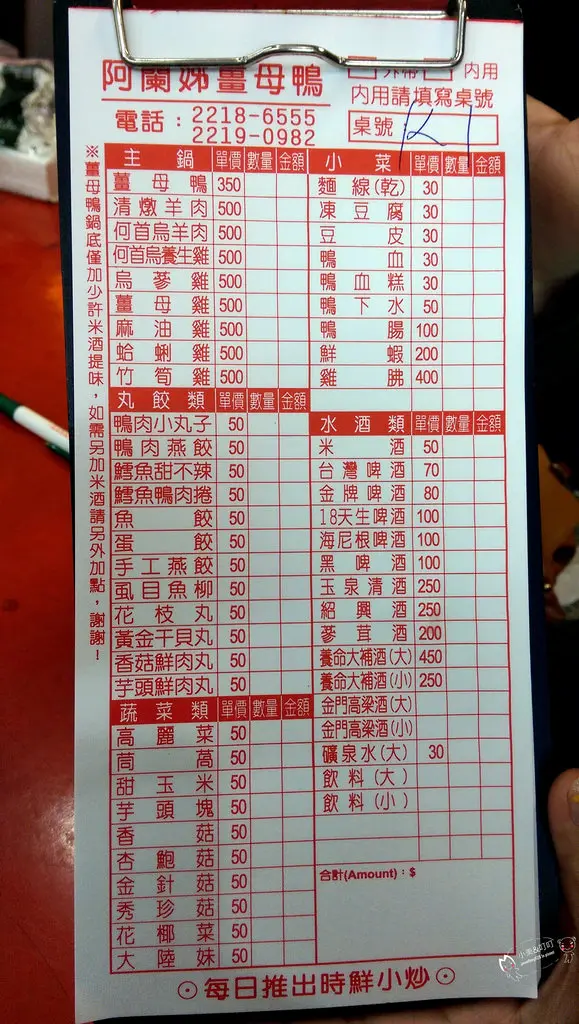 阿蘭姊薑母鴨
外帶 內用
內用請填寫桌號
電話：2218-6555
2219-0982
桌號 K1
※薑母鴨鍋底僅加少許米酒提味，如需另加米酒請另外加點，謝謝！
主鍋 單價 數量 金額
薑母鴨 350
清燉羊肉 500
何首烏羊肉 500
何首烏養生雞 500
烏蔘雞 500
薑母雞 500
麻油雞 500
蛤蜊雞 500
竹筍雞 500
丸餃類 單價 數量 金額
鴨肉小丸子 50
鴨肉燕餃 50
鱈魚甜不辣 50
鱈魚鴨肉捲 50
魚餃 50
蛋餃 50
手工燕餃 50
虱目魚柳 50
花枝丸 50
黃金干貝丸 50
香菇鮮肉丸 50
芋頭鮮肉丸 50
蔬菜類 單價 數量 金額
高麗菜 50
茼萵 50
甜玉米 50
芋頭塊 50
香菇 50
杏鮑菇 50
金針菇 50
秀珍菇 50
花椰菜 50
大陸妹 50
小菜 單價 數量 金額
麵線(乾) 30
凍豆腐 30
豆皮 30
鴨血 30
鴨血糕 30
鴨下水 50
鴨腸 100
鮮蝦 200
雞胇 400
水酒類 單價 數量 金額
米酒 50
台灣啤酒 70
金牌啤酒 80
18天生啤酒 100
海尼根啤酒 100
黑啤酒 100
玉泉清酒 250
紹興酒 250
蔘茸酒 200
養命大補酒(大) 450
養命大補酒(小) 250
金門高梁酒(大)
金門高梁酒(小)
礦泉水(大) 30
飲料(大)
飲料(小)
合計(Amount)：$
⊙每日推出時鮮小炒⊙